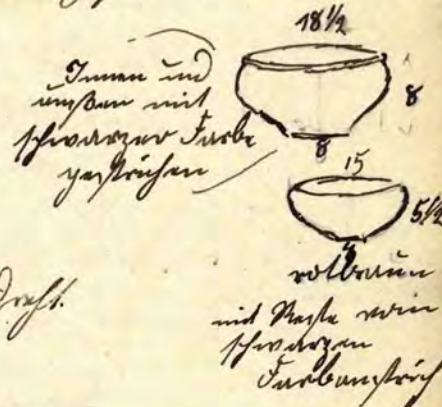 18 1/2
Innen und
außen mit
schwarzer Farbe
gestrichen
8
8
15
5 1/2
rotbraun
mit Reste vom
schwarzen
Farbanstrich